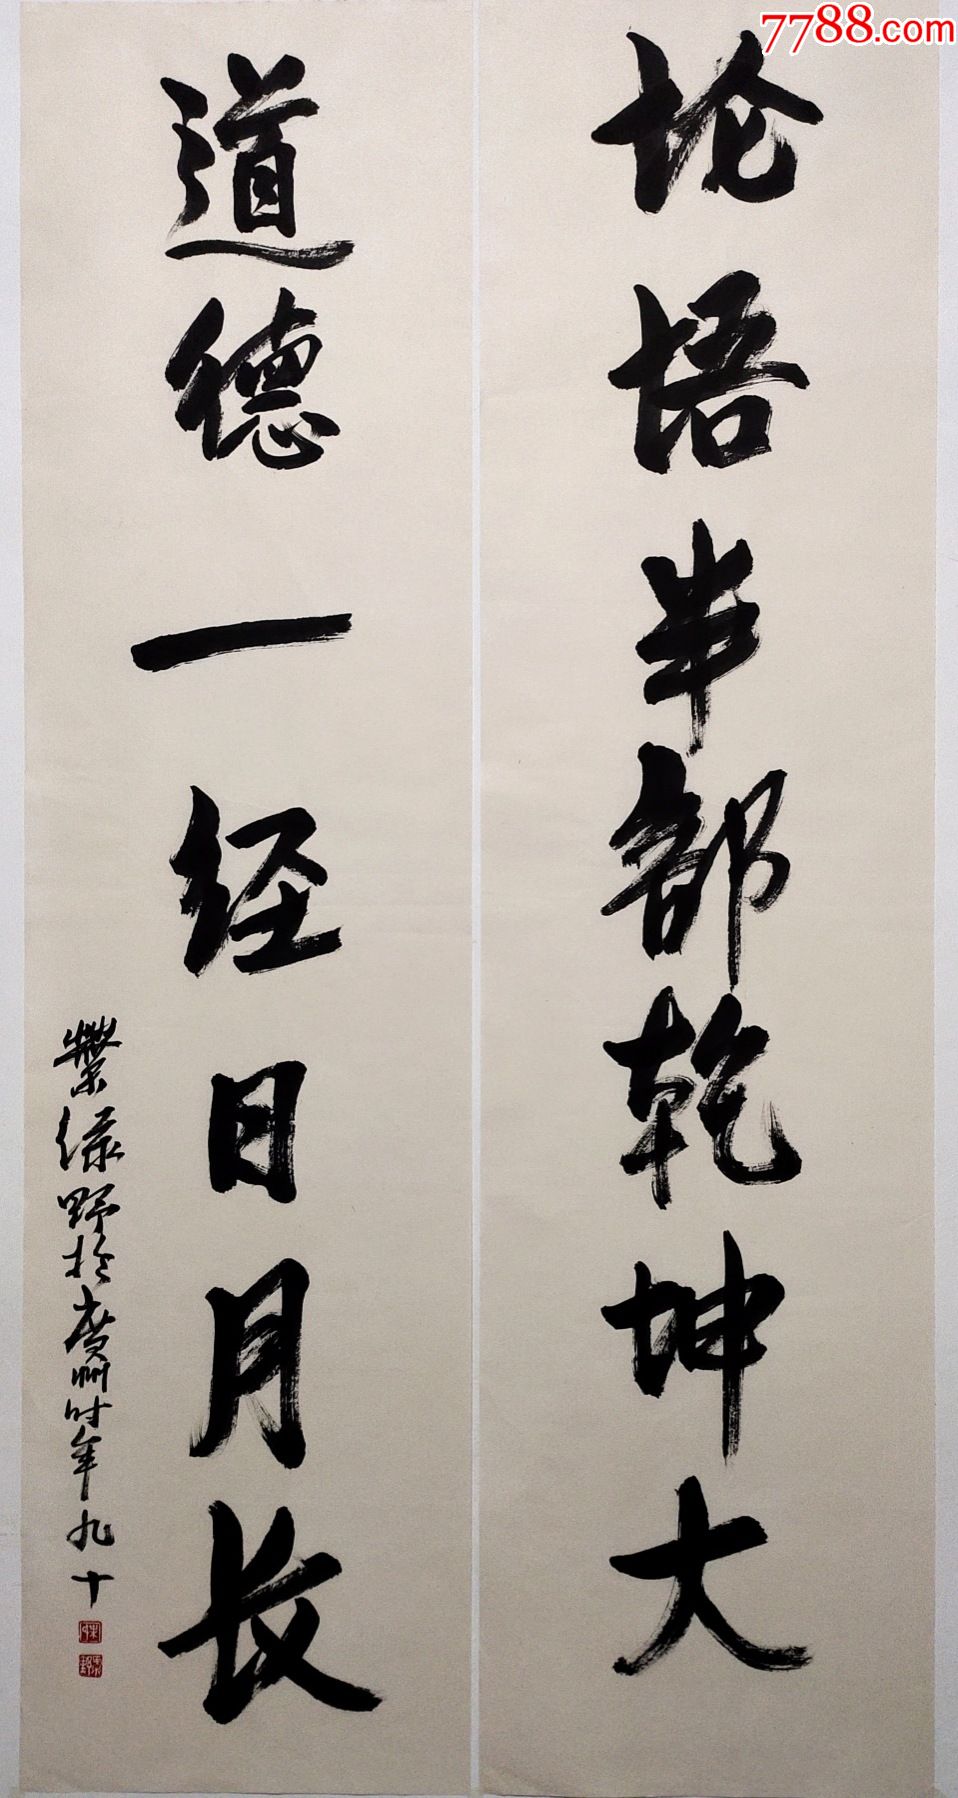 7788.com
论语半部乾坤大
道德一经日月长
绿野於廣州时年九十